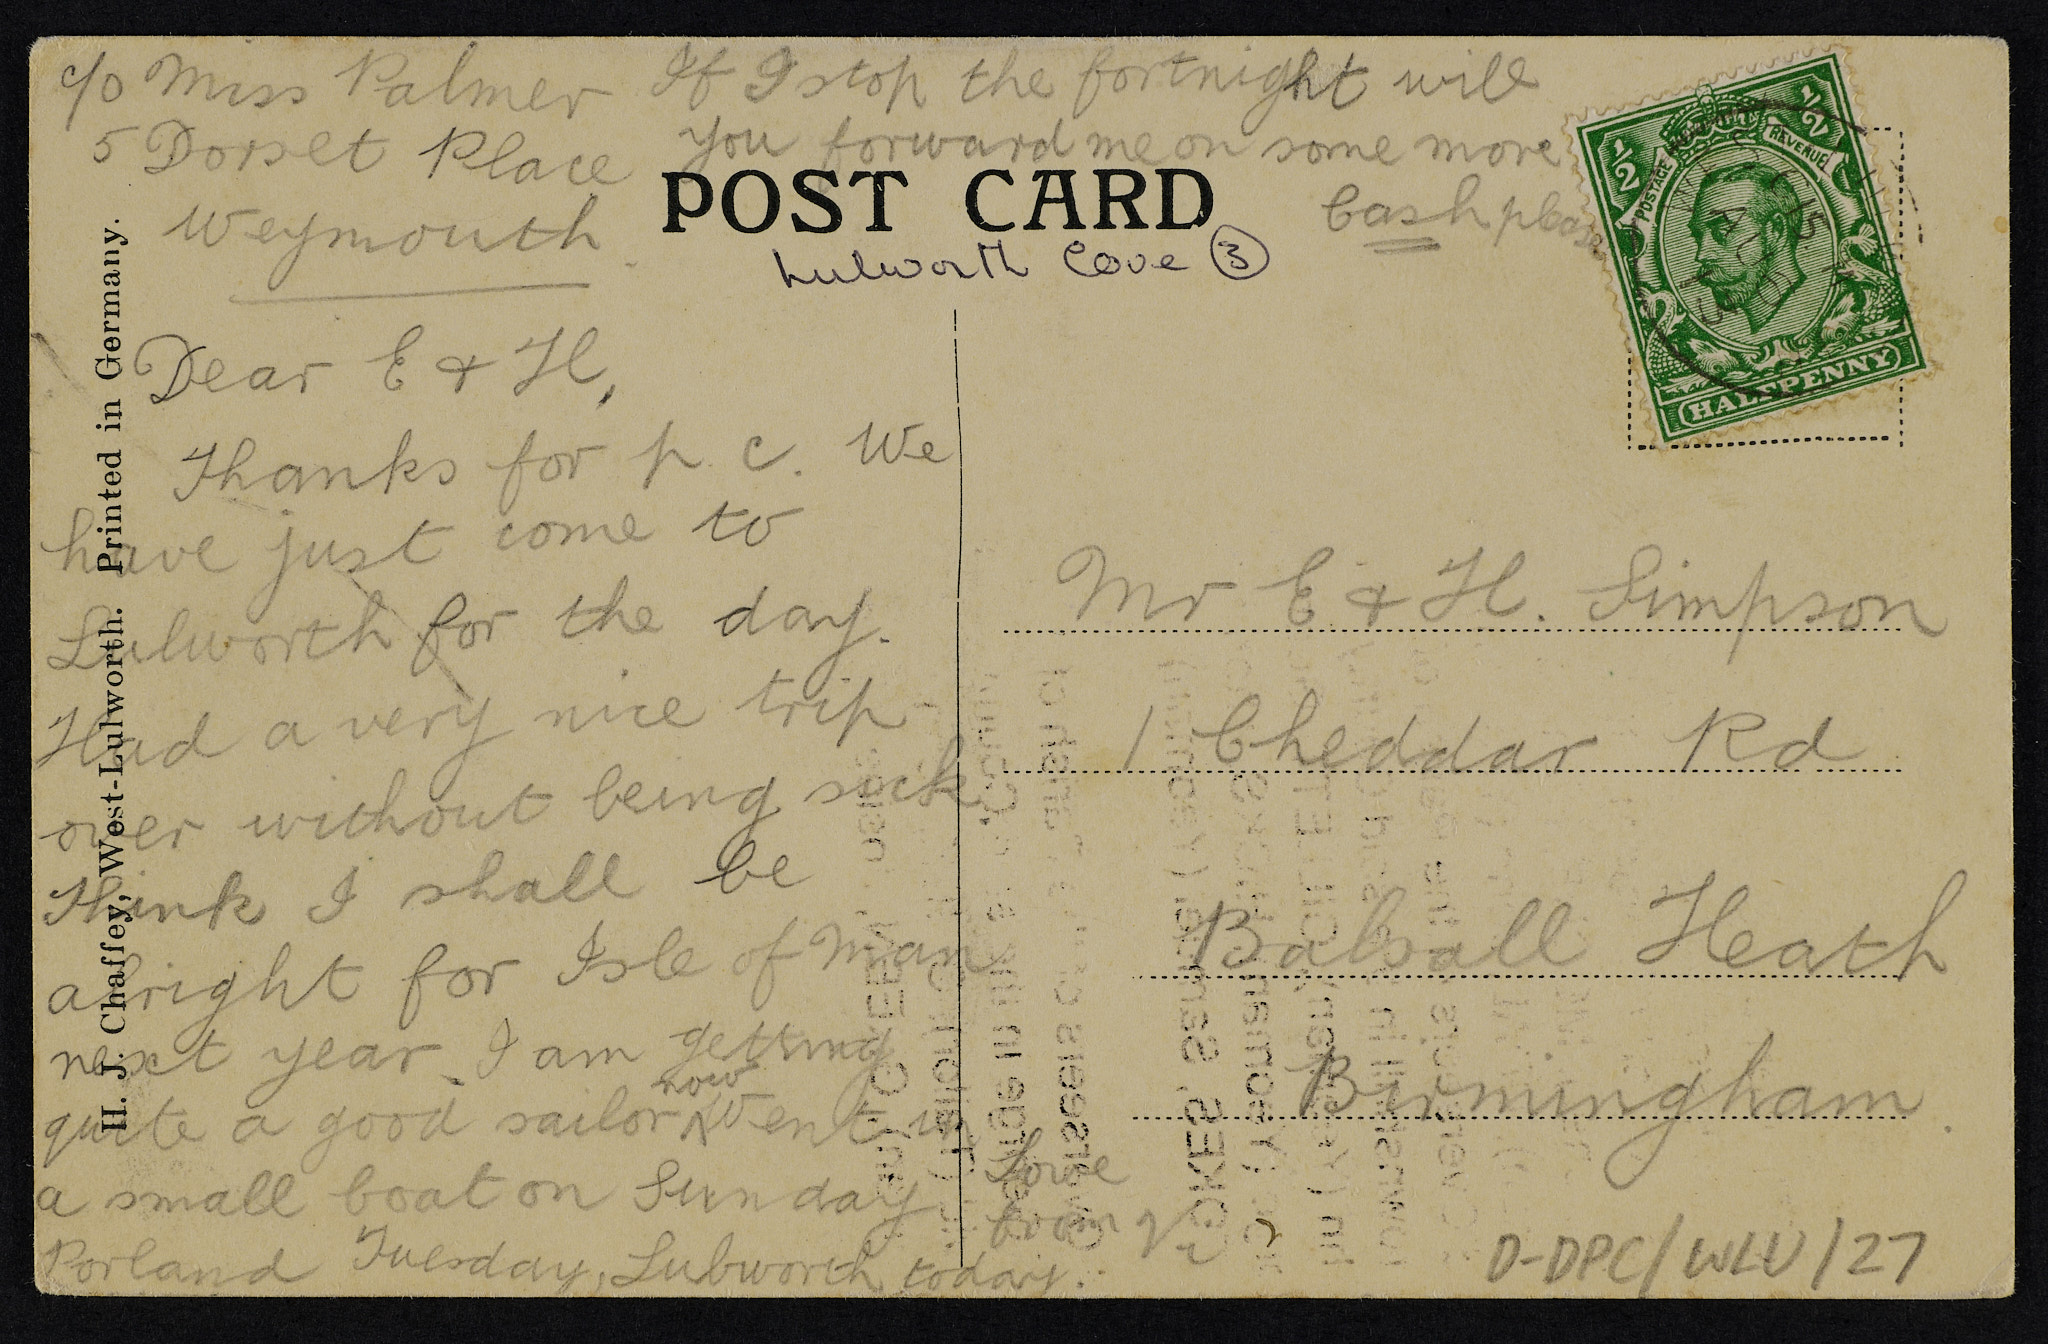 c/o Miss Palmer
5 Dorset Place
Weymouth
If I stop the fortnight will
you forward me on some more
Cash please
POST CARD
Lulworth Cove 3
Dear E & H,
Thanks for p.c. We
have just come to
Lulworth for the day.
Had a very nice trip
over without being sick
Think I shall be
alright for Isle of Man
next year. I am getting
quite a good sailor now Went in
a small boat on Sunday
Porland Tuesday, Lulworth today.
Love
from
Mr E & H. Simpson
1 Cheddar Rd
Balsall Heath
Birmingham
D-DPC/WLU/27
H. J. Chaffey, West-Lulworth. Printed in Germany.
1/2
1/2
POSTAGE
REVENUE
HALFPENNY